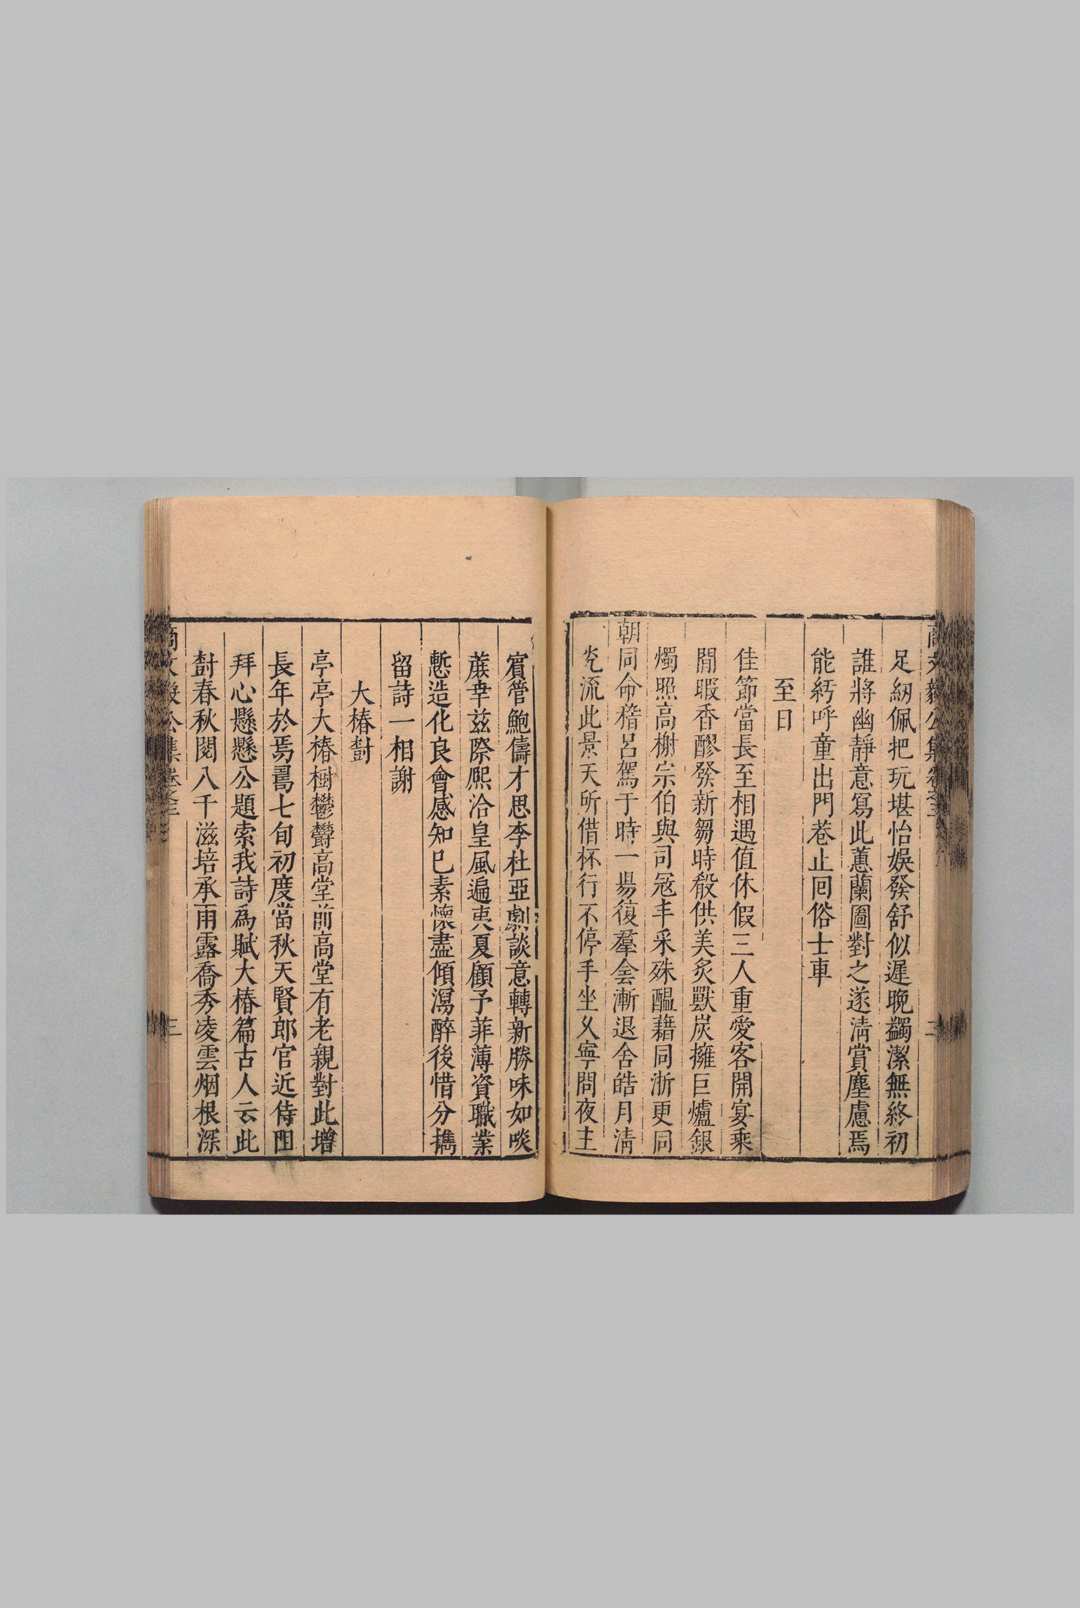 足紉佩把玩堪怡娛發舒似遲晚蠲潔無終初
誰將幽靜意寫此蕙蘭圖對之遂淸賞塵慮焉
能紆呼童出門巷止囘俗士車
至日
佳節當長至相遇值休假三人重愛客開宴乘
閒暇香醪發新篘時殽供美炙獸炭擁巨爐銀
燭照高榭宗伯與司冦丰采殊醖藉同浙更同
朝同命稽呂駕于時一昜復羣会漸退舍皓月淸
光流此景天所借杯行不停手坐久寧問夜主
賓管鮑儔才思李杜亞劇談意轉新勝味如啖
蔗幸兹際熈洽皇風遍夷夏顧予菲薄資職業
慙造化良會感知已素懷盡傾瀉醉後惜分攜
留詩一相謝
大椿㪯
亭亭大椿樹鬱鬱高堂前高堂有老親對此增
長年於焉曷七旬初度當秋天賢郎官近侍阻
拜心懸懸公題索我詩爲賦大椿篇古人云此
㪯春秋閱八千滋培承雨露喬秀凌雲烟根深
商文毅公集卷之三
三